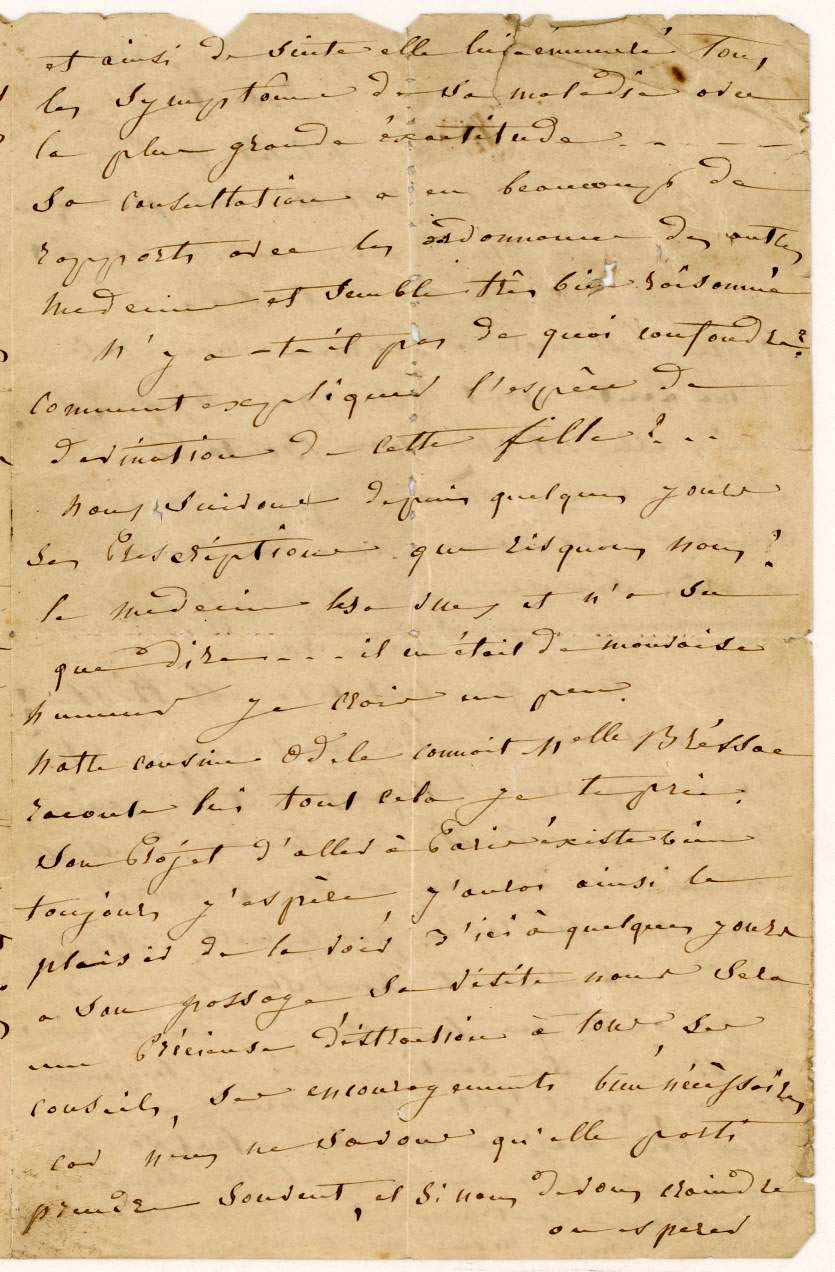 et ainsi de suite elle lui a énuméré tous
les symptôme de sa maladie avec
la plus grande éxactitude - - - - -
Sa consultation a eu beaucoup de
rapports avec les ordonnance des autres
medecins et semble três bien raisonnée
N'y a-t-il pas de quoi confondre?
comment expliquer l'espèce de
divination de cette fille? . . .
Nous suivons depuis quelques jours
ses Prescriptions que risquons nous?
le medecin les a vues et n'a su
que dire - - - il en était de mauvaise
humeur je crois un peu.
Notre cousine Odèle connait Melle Bréssac
raconte lui tout cela je te prie.
Son Projet d'aller à Paris éxiste bien
toujours j'espère, j'aurai ainsi le
plaisir de la voir d'ici à quelques jours
a son passage sa visite nous sera
une Précieuse distraction à tous ses
conseils, ses encouragements bien nécéssaires
car nous ne savons quelle parti
prendre souvent, et si nous devons craindre
ou esperer